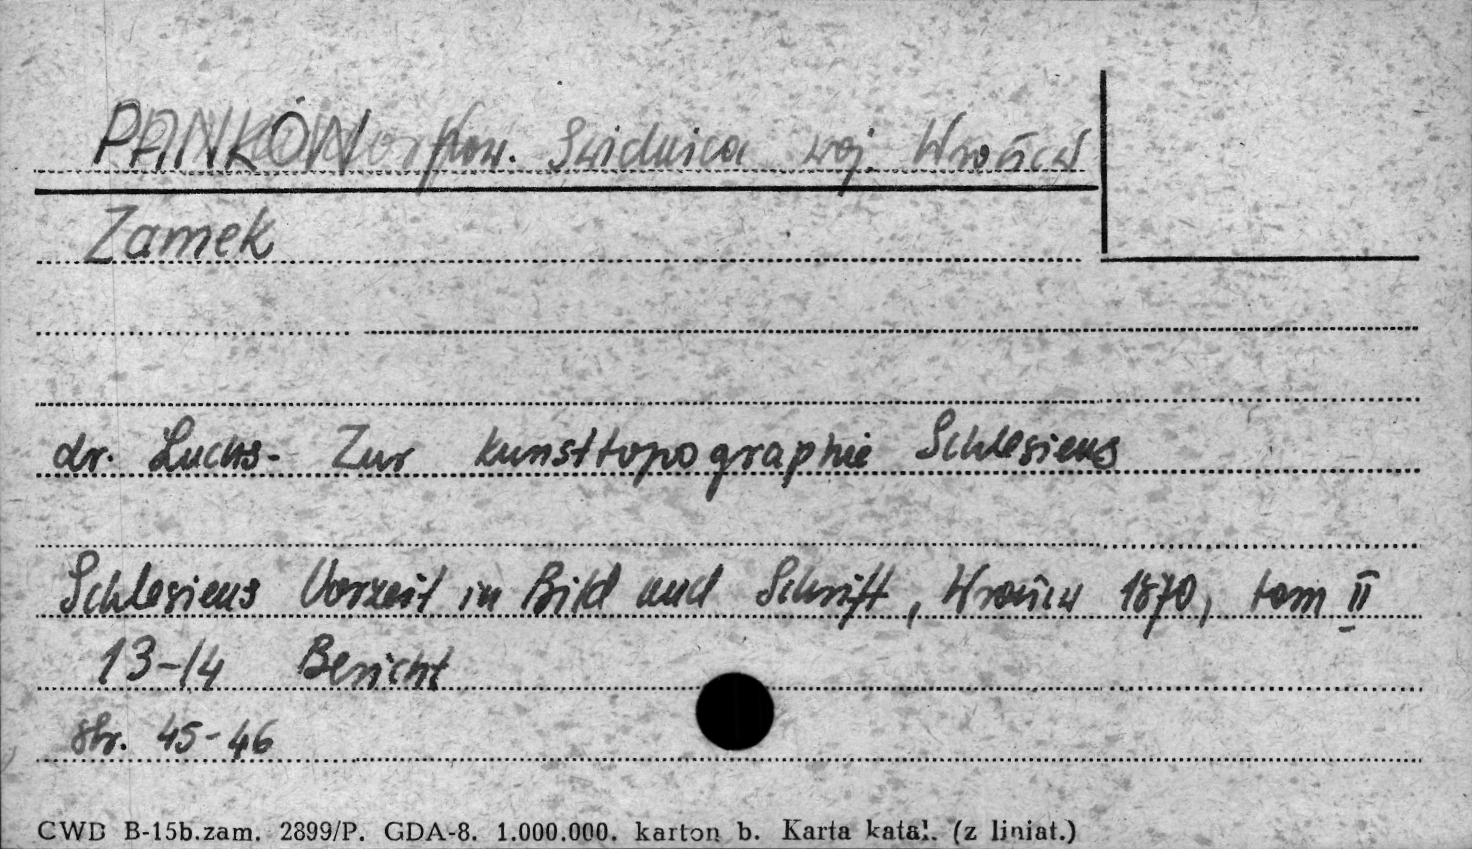 PANKÓW pow. Świdnica woj. Wrocław
Zamek
dr. Luchs - Zur Kunsttopographie Schlesiens
Schlesiens Vorzeit in Bild und Schrift, Wrocław 1870, tom II
13-14 Bericht
str. 45-46
CWD B-15b.zam. 2899/P. GDA-8. 1.000.000. karton b. Karta katal. (z liniat.)